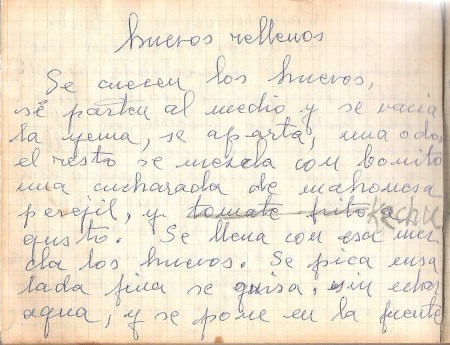 huevos rellenos
Se cuecen los huevos,
se parten al medio y se vacia
la yema, se aparta, una o dos,
el resto se mezcla con bonito
una cucharada de mahonesa
perejil, y tomate frito a
gusto. Se llena con esa mez
cla los huevos. Se pica ensa
lada fina se guisa, sin echar
agua, y se pone en la fuente